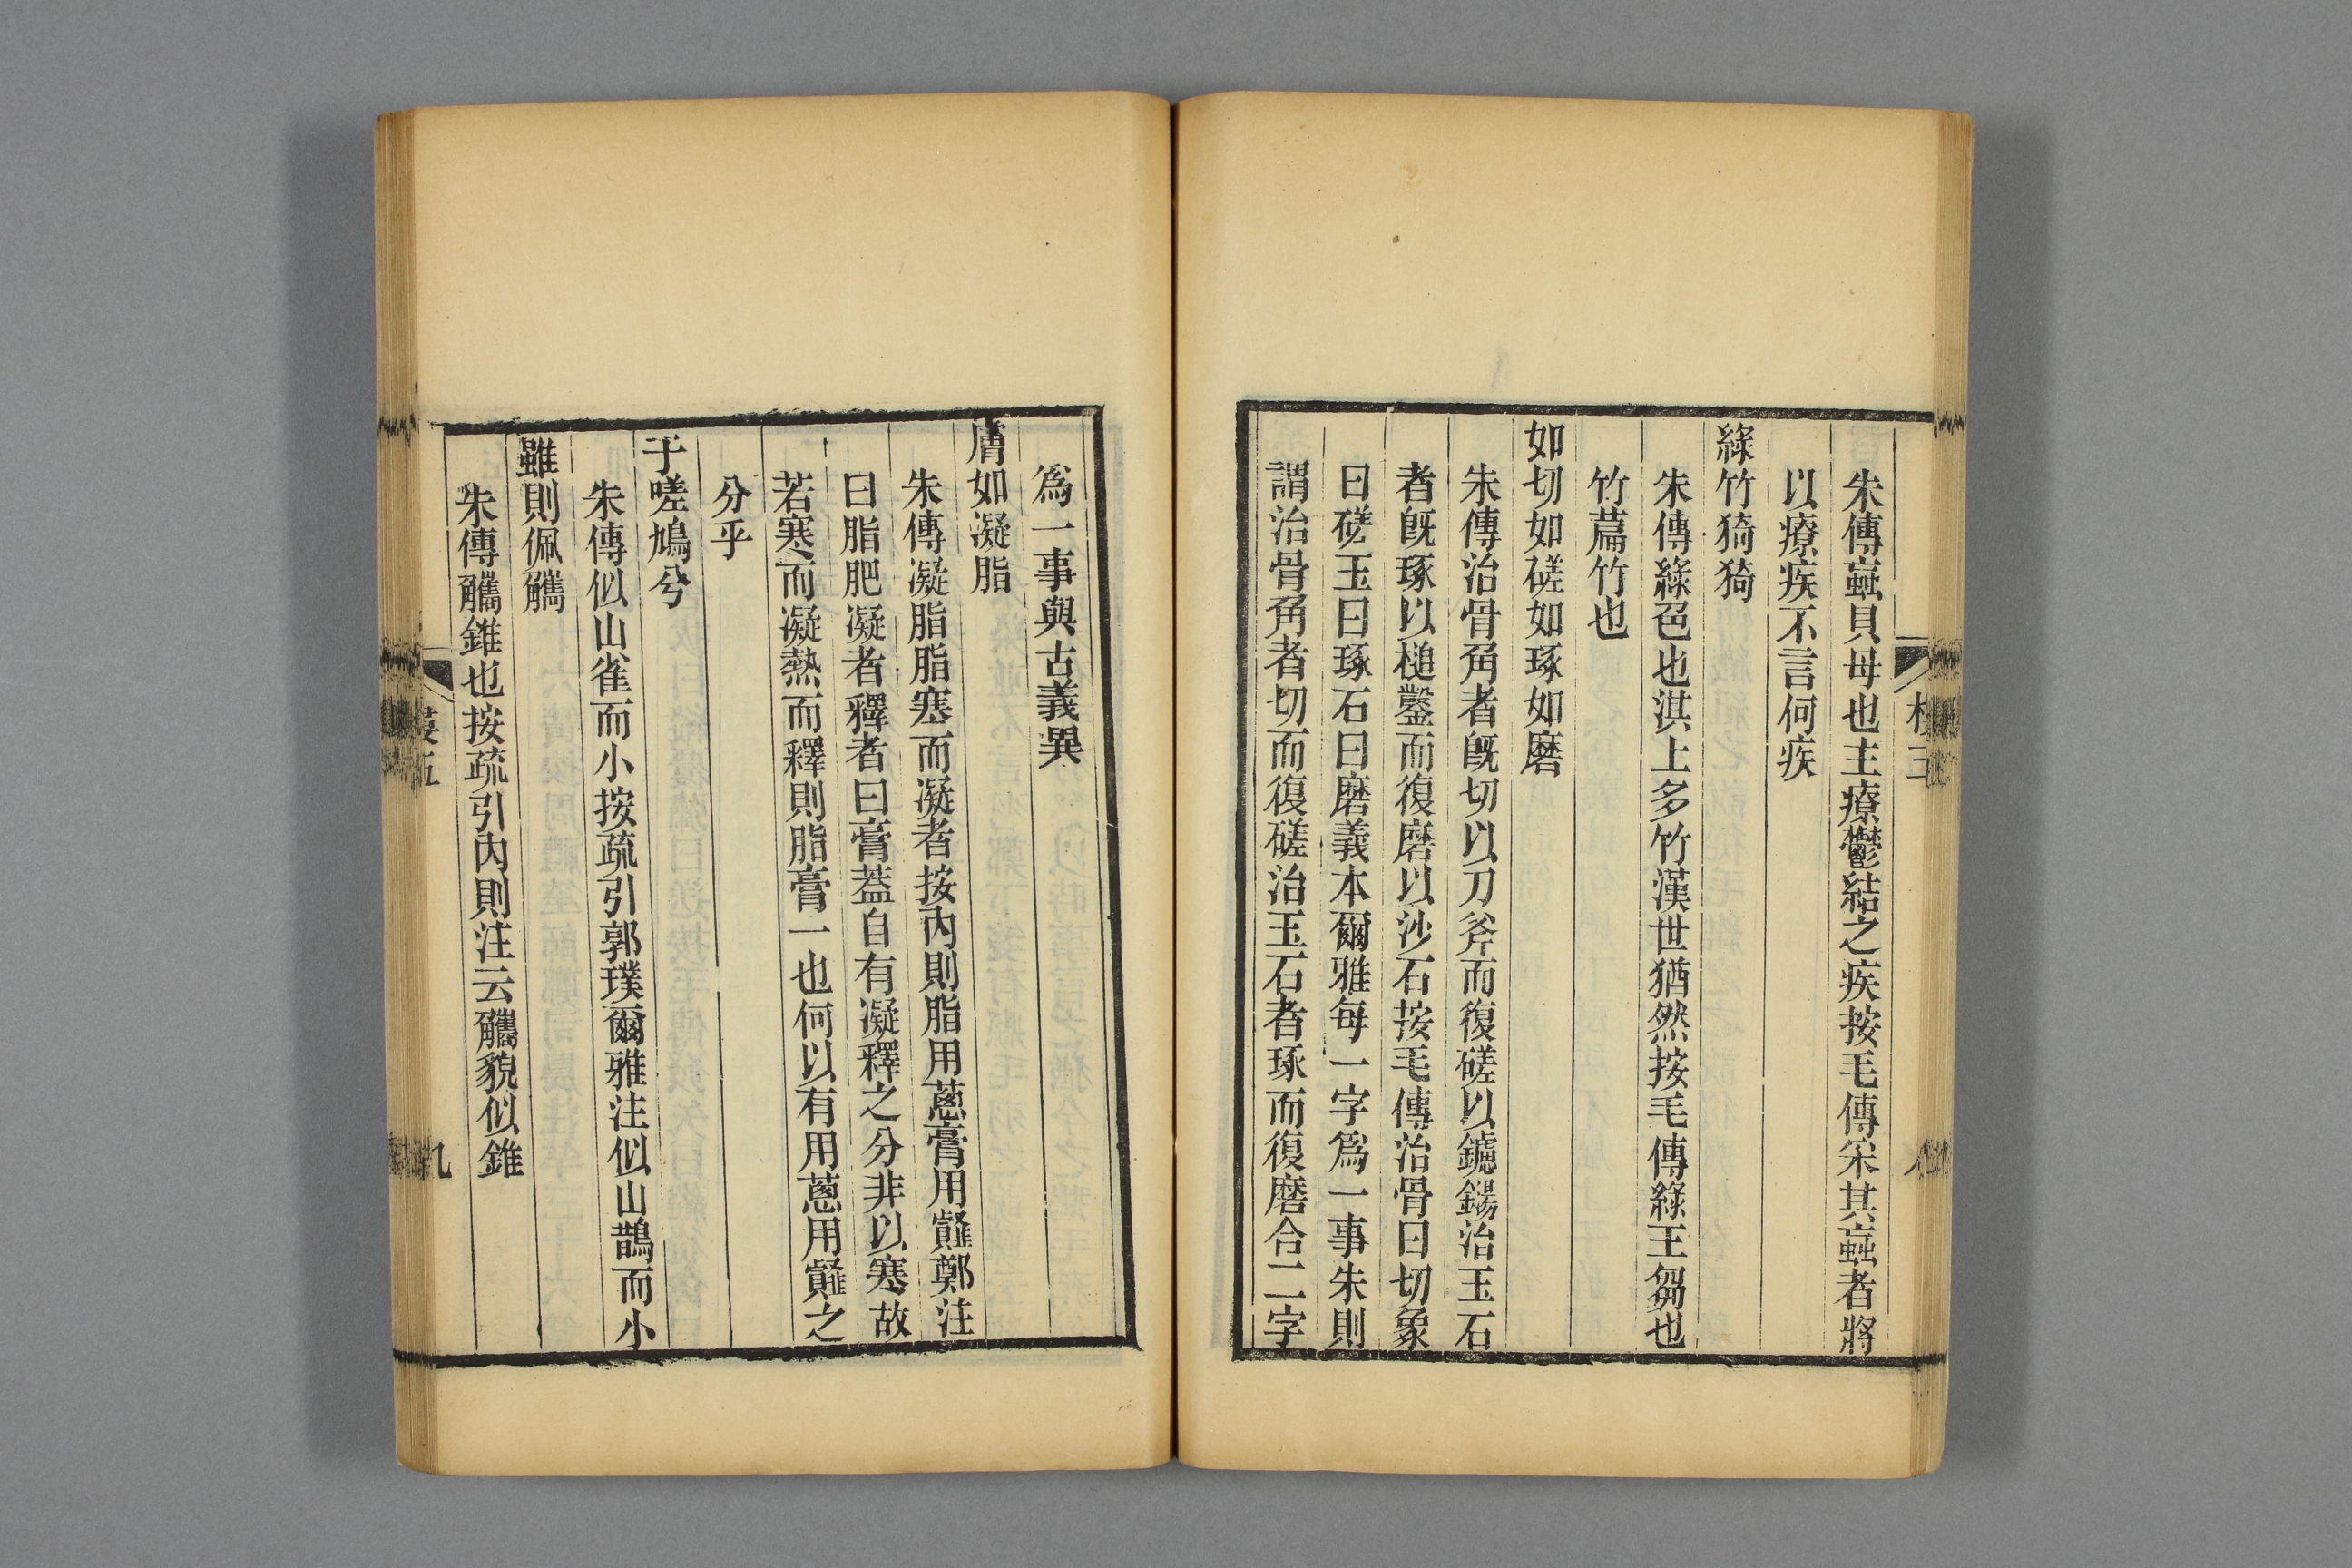 朱傳蝱貝母也主療鬱結之疾按毛傳采其蝱者將
以療疾不言何疾
綠竹猗猗
朱傳綠色也淇上多竹漢世猶然按毛傳綠王芻也
竹萹竹也
如切如磋如琢如磨
朱傳治骨角者旣切以刀斧而復磋以鑢鍚治玉石
者旣琢以槌鑿而復磨以沙石按毛傳治骨曰切象
曰磋玉曰琢石曰磨義本爾雅每一字爲一事朱則
謂治骨角者切而復磋治玉石者琢而復磨合二字
爲一事與古義異
膚如凝脂
朱傳凝脂脂寒而凝者按內則脂用蔥膏用薤鄭注
曰脂肥凝者釋者曰膏蓋自有凝釋之分非以寒故
若寒而凝熱而釋則脂膏一也何以有用蔥用薤之
分乎
于嗟鳩兮
朱傳似山雀而小按疏引郭璞爾雅注似山鵲而小
雖則佩觿
朱傳觿錐也按疏引內則注云觿貌似錐